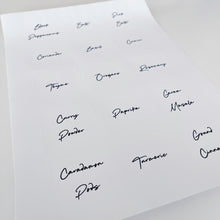 Black
Peppercorns
Salt
Coriander
Basil
Cumin
Thyme
Oregano
Rosemary
Curry
Powder
Paprika
Garam
Masala
Caradamon
Pods
Turmeric
Ground